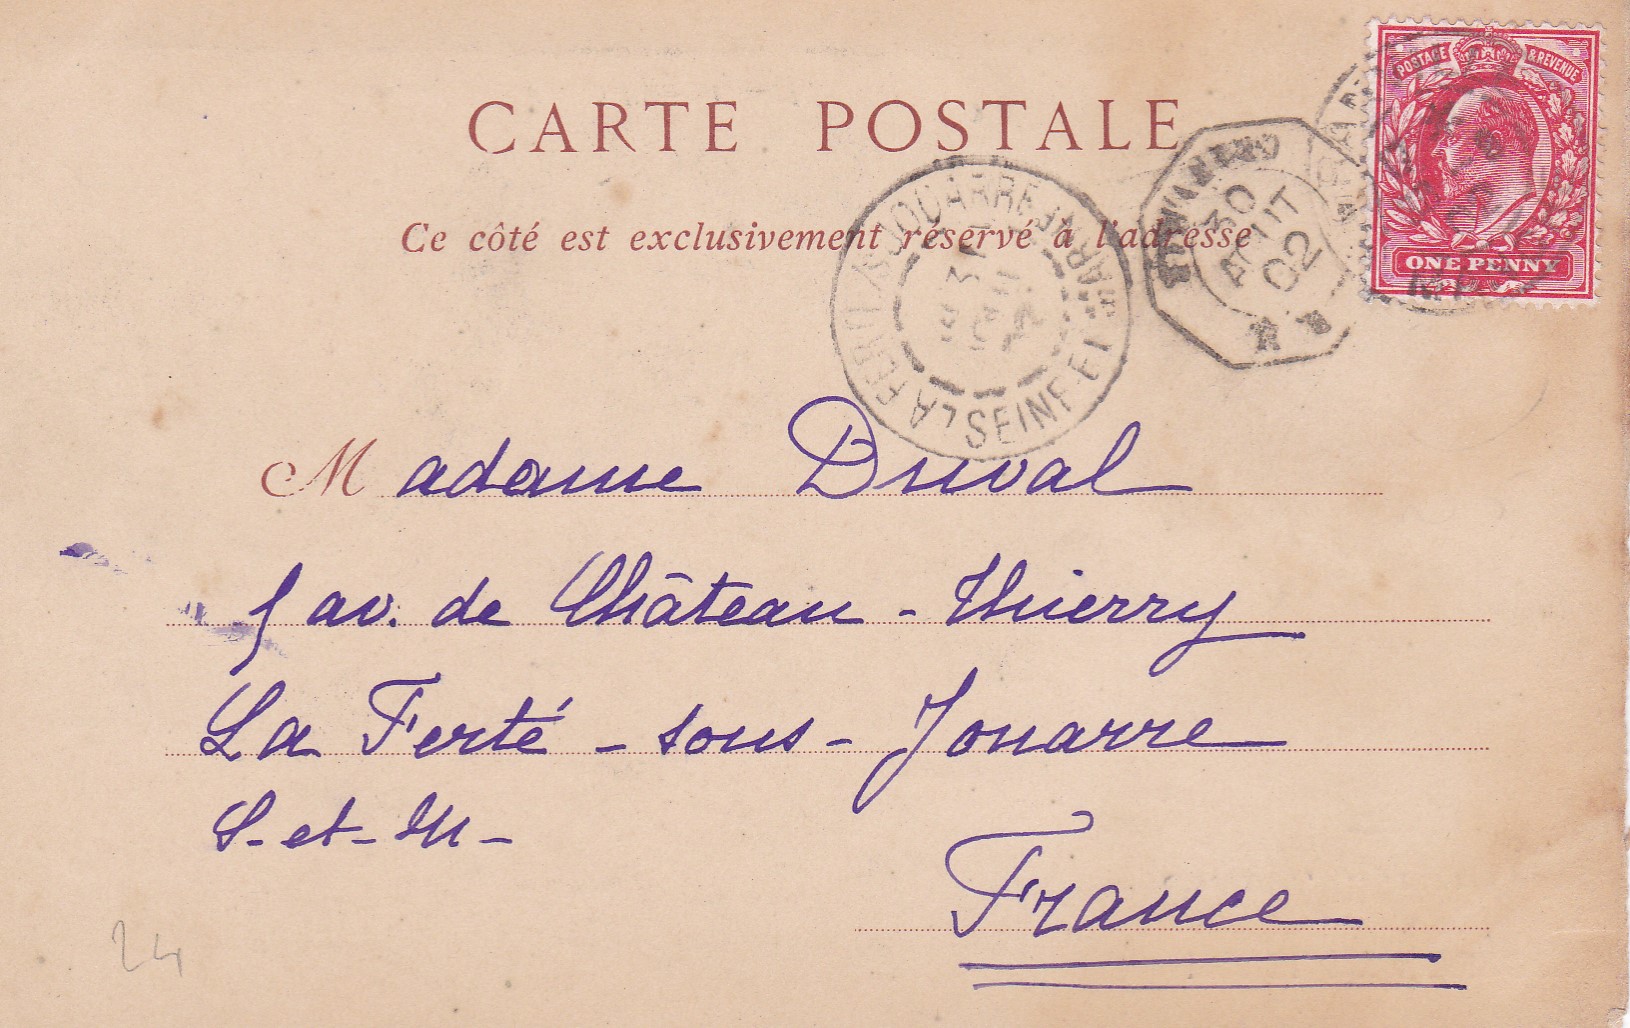 CARTE POSTALE
POSTAGE & REVENUE
ONE PENNY
Ce côté est exclusivement réservé à l'adresse
LA FERTÉ-S-JOUARRE
SEINE-ET-MARNE
30
AOUT
02
Madame Duval
5 av. de Château-Thierry
La Ferté-sous-Jouarre
S-et-M-
France
24